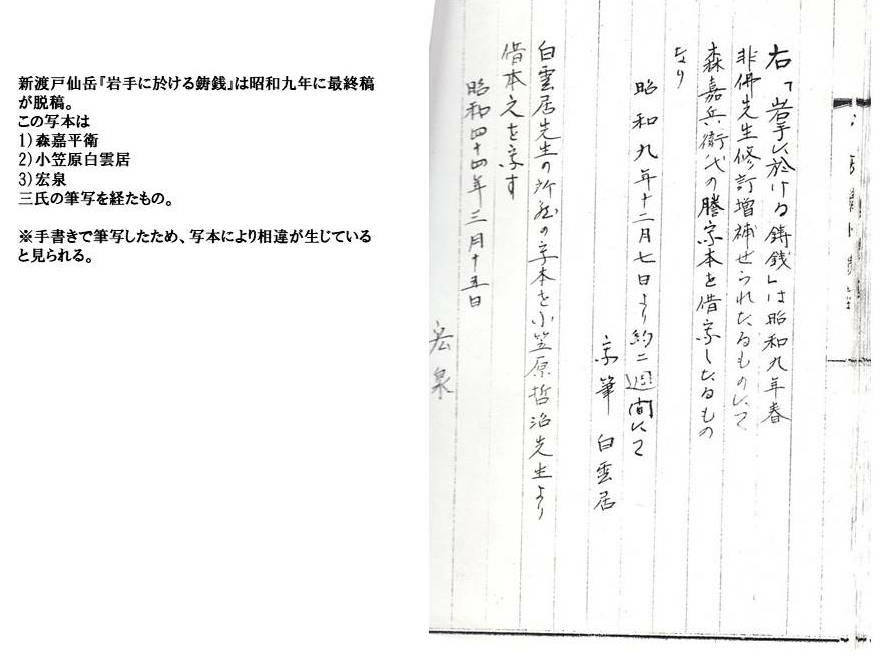 新渡戸仙岳『岩手に於ける鋳銭』は昭和九年に最終稿
が脱稿。
この写本は
1)森嘉平衛
2)小笠原白雲居
3)宏泉
三氏の筆写を経たもの。
※手書きで筆写したため、写本により相違が生じている
と見られる。
右「岩手に於ける鋳銭」は昭和九年春
非佛先生修訂増補せられたるものにて
森嘉兵衛氏の謄写本を借写したるもの
なり
昭和九年十二月七日より約二週間にて
写筆 白雲居
白雲居先生の所蔵の写本を小笠原哲治先生より
借本之を写す
昭和四十四年三月十五日
宏泉